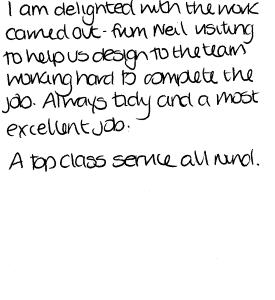 I am delighted with the work
carried out - from Neil visiting
to help us design to the team
working hard to complete the
job. Always tidy and a most
excellent job.
A top class service all round.